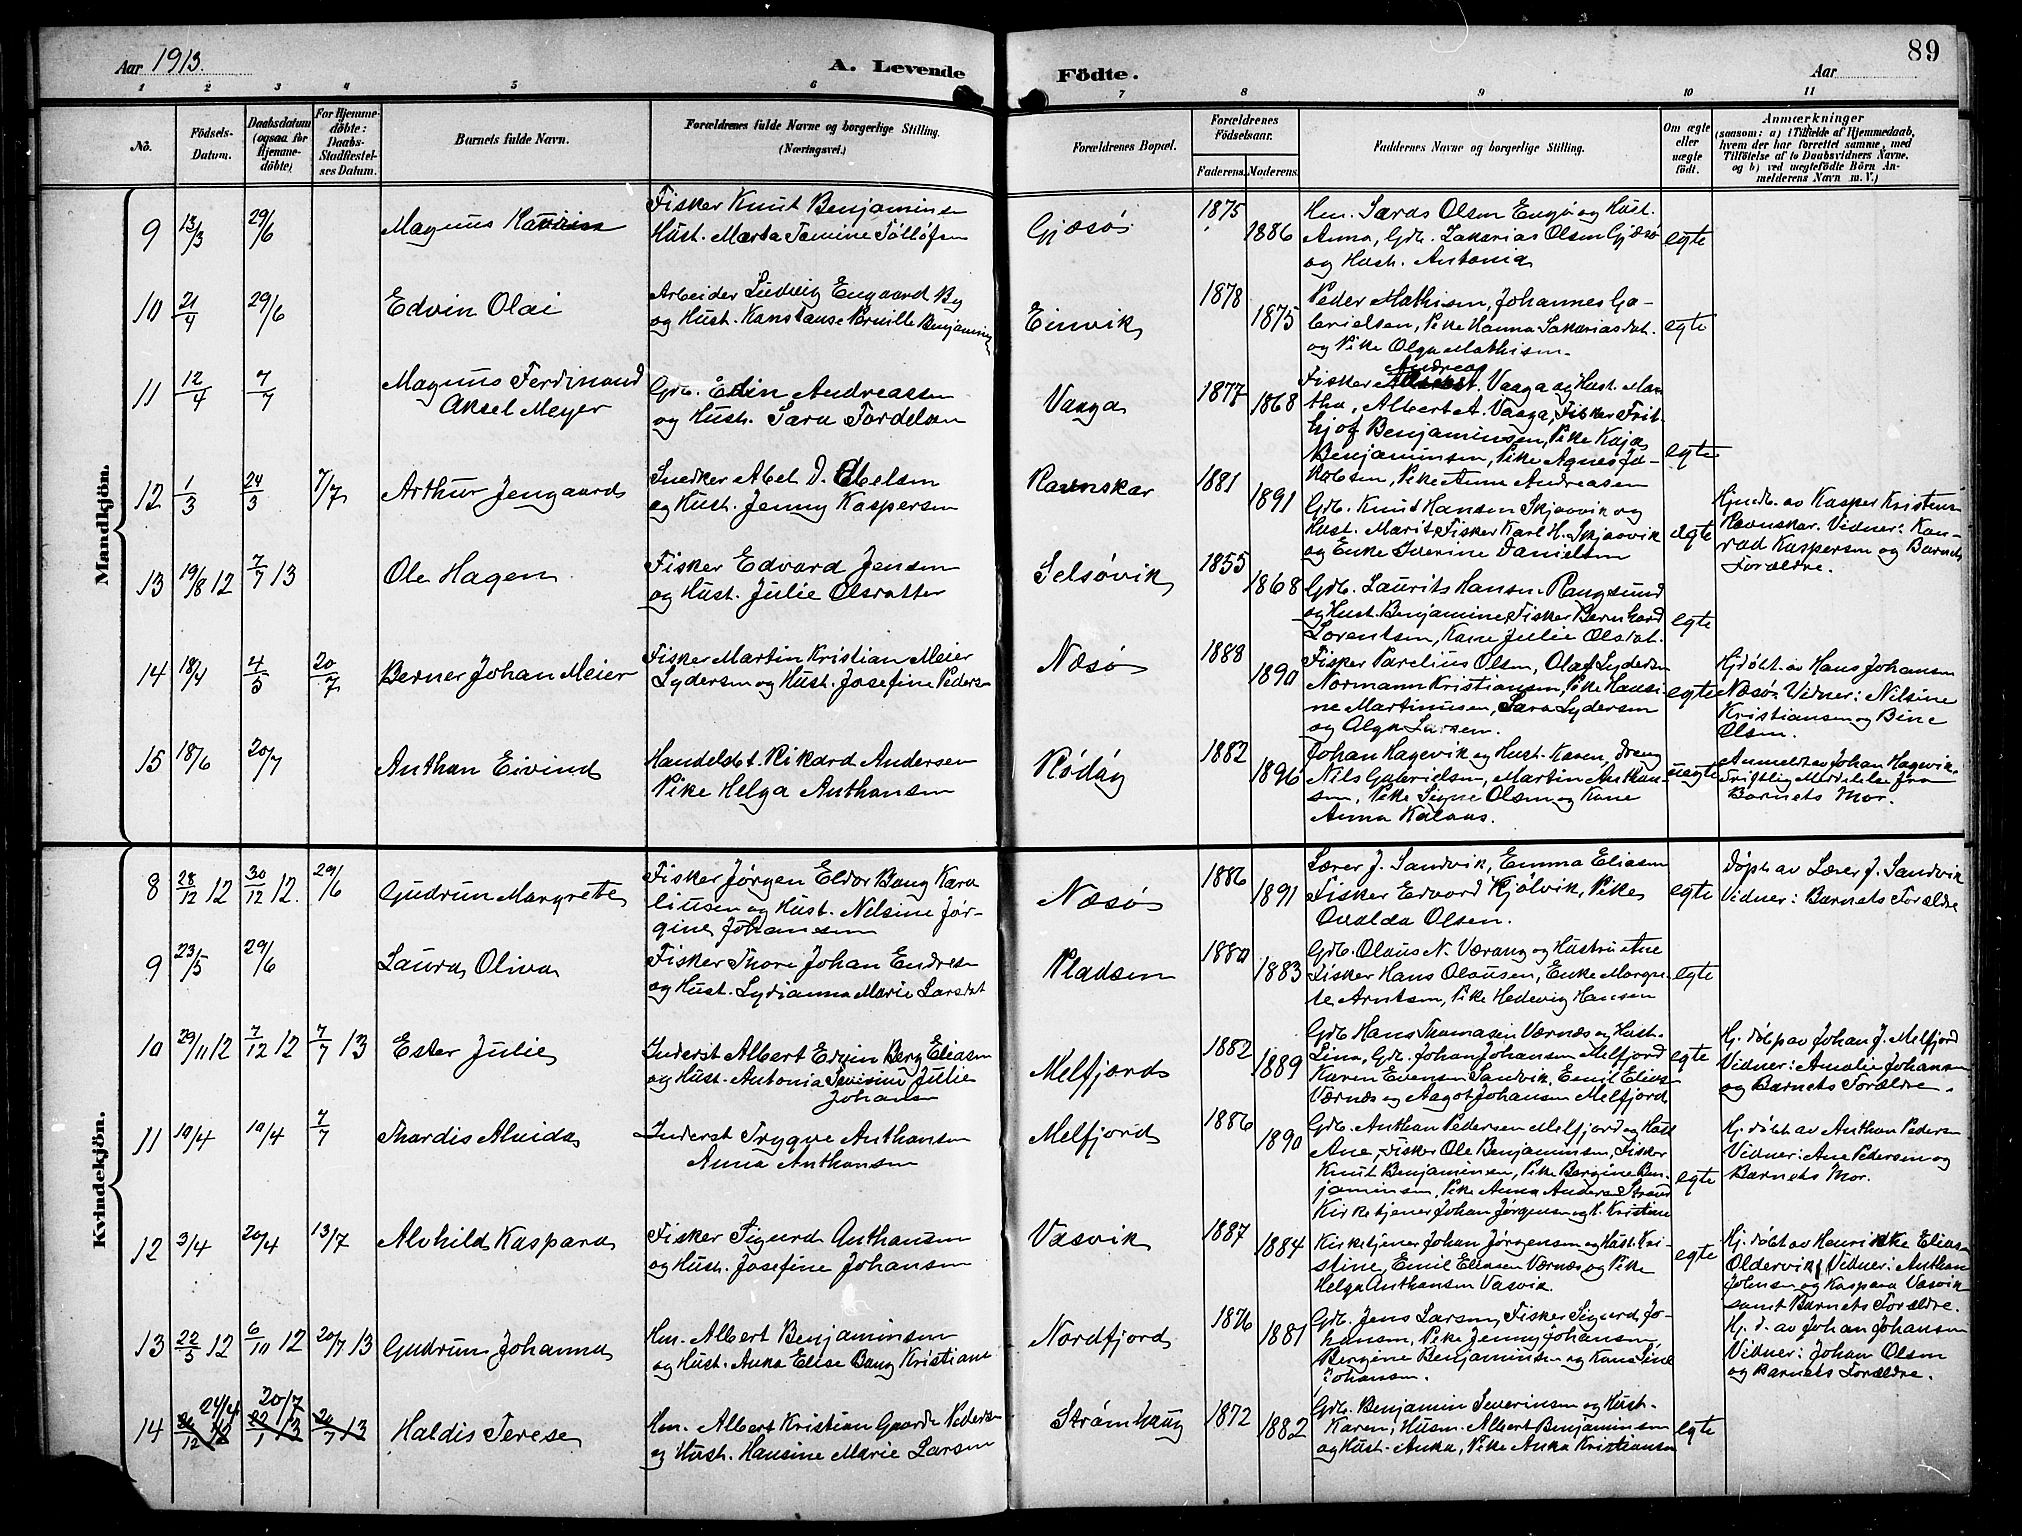 Aar 1913.
A. Levende
Födte.
Aar
89
1 2 3 4 5 6 7 8 9 10 11
No.
Födsels-
Datum.
Daabsdatum
(ogsaa for
Hjemme-
döbte)
For Hjemme-
döbte:
Daabs-
Stadfæstel-
ses Datum.
Barnets fulde Navn.
Forældrenes fulde Navne og borgerlige Stilling.
(Næringsvei.)
Forældrenes Bopæl.
Forældrenes
Födselsaar.
Faderens. Moderens.
Faddernes Navne og borgerlige Stilling.
Om ægte
eller
uægte
födt.
Anmærkninger
(saasom: a) i Tilfælde af Hjemmedaab,
hvem der har forrettet samme, med
Tilföielse af to Daabsvidners Navne,
og b) ved uægtefödte Börn An-
melderens Navn m. V.)
Mandkjön.
9 13/3 29/6 Magnus
Fisker Knut Benjaminsen
og Hust. Marta Tomine Tolløfsen
Gjæsø 1875 1886
Hm. Lards Olsen Engø og Hust.
Anna, Grb. Sakarias Olsen Gjæsø
og Hust. Antonia
egte
10 21/4 29/6 Edvin Olai
Arbeider Ludvig Engaard By
og Hust. Konstanse Pernille Benjamins
Einvik 1878 1875
Peder Mathisen, Johannes Ga-
brielsen, Pike Hanna Sakariasdat.
og Pike Olga Mathisen.
egte
11 12/4 7/7 Magnus Ferdinand
Aksel Meyer
Grb. Edin Andreassen
og Hust. Sara Tordelsen
Vaaga 1877 1868
Andreas
Fisker A. Vaaga og Hust. Mar-
tha, Albert A. Vaaga, Fisker Frit-
hjof Benjaminsen, Pike Kaja
Benjaminsen, Pike Agnes Ja-
kobsen, Pike Anna Andreasen
egte
12 1/3 24/3 7/7 Arthur Jengaard
Snedker Abel D. Abelsen
og Hust. Jenny Kaspersen
Ravnskar 1881 1891
Grb. Knut Hansen Skjavvik og
Hust. Marit, Fisker Karl H. Skjavvik
og Enke Severine Danielsen
egte
Hjmdb. av Kasper Kristens
Ravnskar. Vidner: Kon-
rad Kaspersen og Barnets
Forældre.
13 19/8 12 7/7 13 Ole Hagen
Fisker Edvard Jensen
og Hust. Julie Olsdatter
Selsøvik 1855 1868
Grb. Laurits Hansen Rangsund
og Hust. Benjamine, Fisker Bernhard
Lorentsen, Kone Julie Olsdat.
egte
14 18/4 4/5 20/7 Berner Johan Meier
Fisker Martin Kristian Meier
Lydersen og Hust. Josefine Peders-
Næsø 1888 1890
Fisker Parelius Olsen, Olaf Lydersen
Normann Kristiansen, Pike Hansi-
ne Martinusen, Sara Lydersen
og Olga Larsen.
egte
Hjdøbt. av Hans Johansen
Næsø. Vidner: Nilsine
Kristiansen og Bine
Olsen.
15 18/6 20/7 Anthon Eivind
Handelsbet. Rikard Andersen
Pike Helga Anthonsen
Rødøy 1882 1896
Johan Hagevik og Hust. Karen, dreng
Nils Gabrielsen, Martin Anthon-
sen, Pike Signe Olsen og Kone
Anna
uegte
Anmeldt av Johan Hagevik.
Skriftlig Meddelelse fra
Barnets Mor.
Kvindekjön.
8 28/12 12 30/12 12. 29/6 Gudrun Margrete
Fisker Jørgen Eldor Bang Karo
liusen og Hust. Nilsine Jør-
gine Johansen
Næsø 1886 1891
Lærer J. Sandvik, Emma Eliasen
Fisker Edvard Kjølvik, Pike
Ovalda Olsen.
egte
Døpt av Lærer J. Sandvik
Vidner: Barnets Forældre
9 23/5 29/6 Laura Oliva
Fisker Thore Johan Endresen
og Hust. Lydianna Marie Larsdat
Pladsen 1880 1883
Grb. Olaus N. Værang og Hustru Ane
Fisker Hans Olausen, Enke Margre-
te Arntsen, Pike Hedevig Hansen
egte
10 29/11 12 7/12 12 7/7 13 Ester Julie
Inderst Albert Edvin Berg Eliasen
og Hust. Antonia Severine Julie
Johansen
Melfjord 1882 1889
Grb. Hans Thomasen Værnæs og Hust.
Lina, Grb. Johan Johansen Melfjord
Karen Evensen Sandvik, Emil Elias-
Værnæs og Aagot Johansen Melfjord
egte
Hj. døbt av Johan J. Melfjord
Vidner: Amalie Johansen
og Barnets Forældre.
11 10/4 10/4 7/7 Thordis Alvida
Inderst Trygve Anthonsen
Anna Anthonsen
Melfjord 1886 1890
Grb. Anthon Pedersen Melfjord og Hust
Ane, Fisker Ole Benjaminsen, Fisker
Knut Benjaminsen, Pike Bergine Ben-
jaminsen, Pike Anna Anders. Strand
Kirketjener Johan Jørgensen og H. Kristine
egte
Hj. døbt av Anthon Pedersen
Vidner: Ane Pedersen og
Barnets Mor.
12 3/4 20/4 13/7 Alvhild Kaspara
Fisker Sigurd Anthonsen
og Hust. Josefine Johansen
Vasvik 1887 1884
Kirketjener Johan Jørgensen og Hust. Kri-
stine, Emil Eliasen Værnæs og Pike
Helga Anthonsen Vasvik.
egte
Hj. døbt av Henrikke Elias-
Oldervik, Vidner: Anthon
Johnsen og Kaspara Vasvik
samt Barnets Forældre.
13 22/5 12 6/10 12 20/7 13 Gudrun Johanna
Hm. Albert Benjaminsen
og Hust. Anna Elise Bang Kristians
Nordfjord 1876 1881
Grb. Jens Larsen, Fisker Sigurd Jo-
hansen, Pike Jenny Johansen,
Bergine Benjaminsen og Kone Line
Johansen.
Hj. d. av Johan Johansen
Vidner: Johan Olsen
og Barnets Forældre.
14 24/4 20/7 Haldis Terese
Hm. Albert Kristian Gaarde Pedersen
og Hust. Hansine Marie Larsen
Strømhaug 1872 1882
Grb. Benjamin Severinsen og Hust.
Karen, Husm. Albert Benjaminsen
og Hust. Anna, Pike Anna Kristiansen
egte